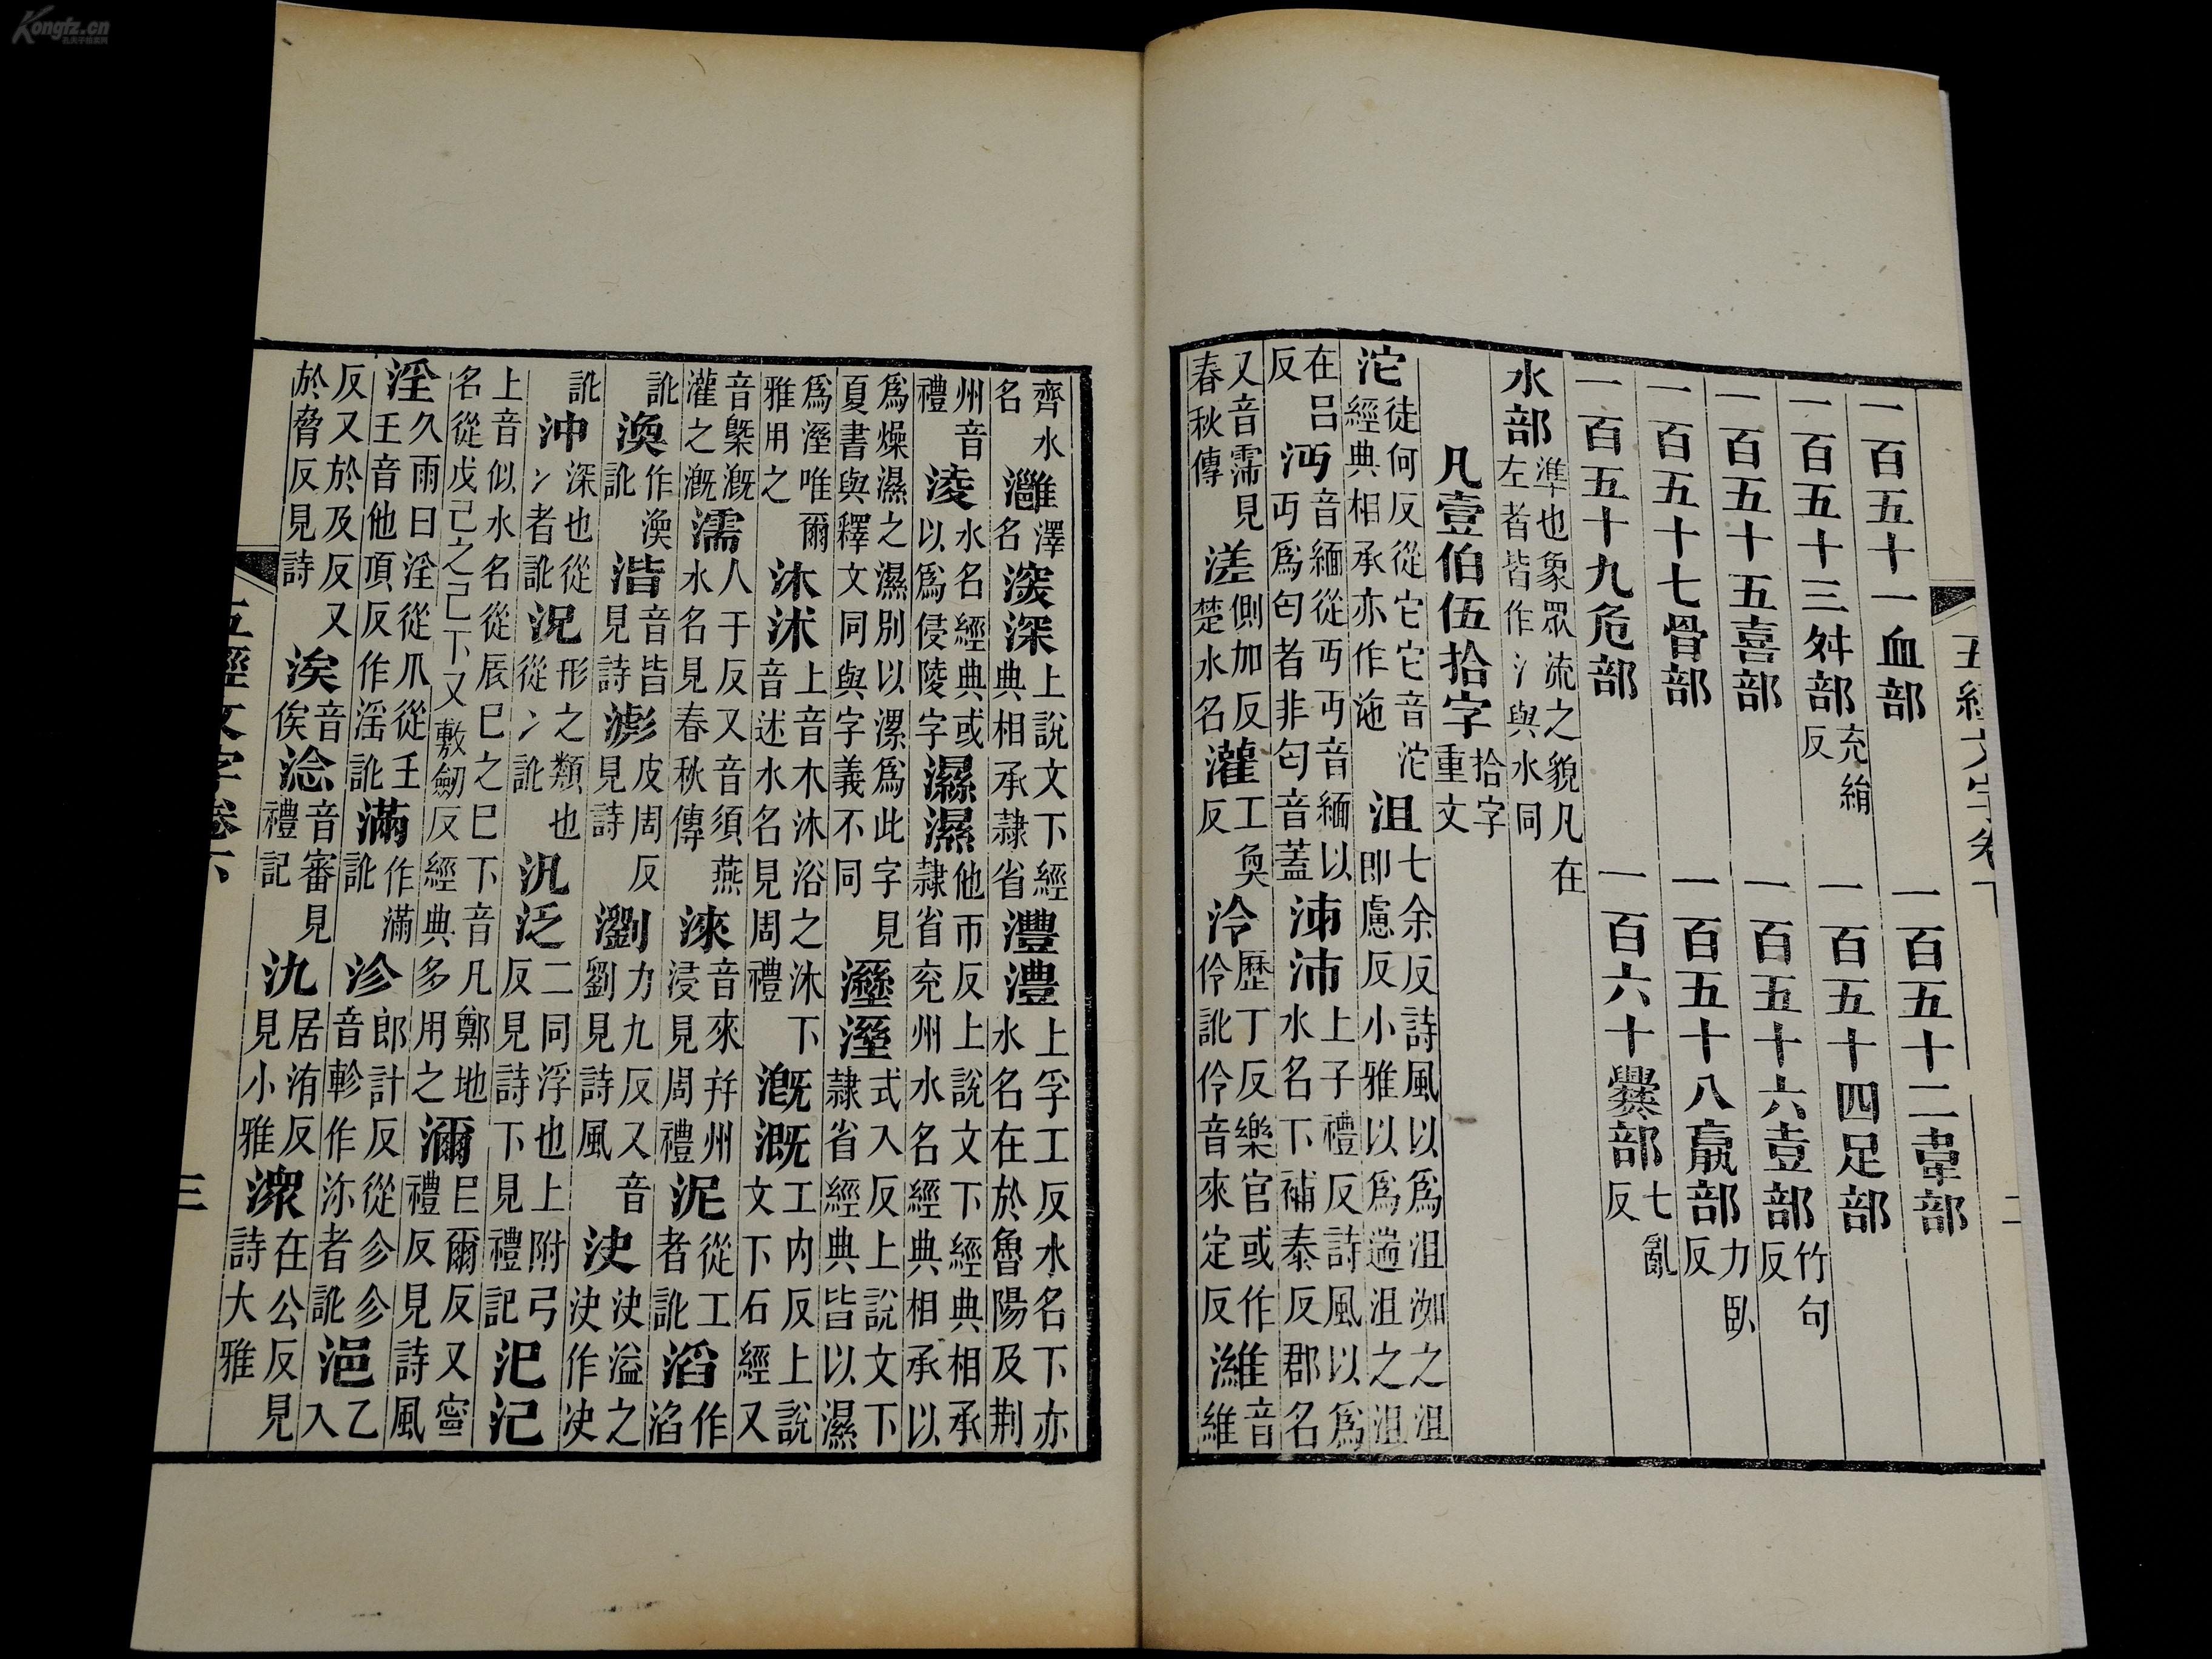 五經文字卷下 二
一百五十一血部 一百五十二韋部
一百五十三舛部充絹反 一百五十四足部
一百五十五喜部 一百五十六壴部竹句反
一百五十七骨部 一百五十八部力臥反
一百五十九危部 一百六十爨部七亂反
水部準也象眾流之貌凡在左者皆作氵與水同
凡壹伯伍拾字拾字重文
沱徒何反從它它音沱經典相承亦作池沮七余反詩風以爲沮洳之沮即慮反小雅以爲遄沮之沮
在呂反沔音緬從丏丏音緬以丏爲匄者非匄音蓋泲沛上子禮反詩風以爲水名下補泰反郡名
又音濡見春秋傳溠側加反楚水名灌工奐反泠歷丁反樂官或作伶訛伶音來定反濰音維
齊水名灉澤名㴱深上說文下經典相承隷省灃澧上孚工反水名下亦水名在於魯陽及荆
州音禮淩水名經典或以爲侵陵字濕濕他帀反上說文下經典相承隷省兖州水名經典相承以
爲燥濕之濕別以漯爲此字見夏書與釋文同與字義不同溼溼式入反上說文下隷省經典皆以濕
爲溼唯爾雅用之沐沭上音木沐浴之沐下音述水名見周禮漑溉工内反上說文下石經又
音槩漑灌之漑濡人于反又音須燕水名見春秋傳淶音來幷州浸見周禮泥從工者訛滔作滔
訛渙作渙訛湝音皆見詩滮皮周反見詩瀏力九反又音劉見詩風決決溢之決作决
訛沖深也從冫者訛況形之類也從冫訛汎泛二同浮也上附弓反見詩下見禮記汜氾
上音似水名從辰巳之巳下音凡鄭地名從戊己之己下又敷劒反經典多用之瀰巨爾反又寧禮反見詩風
淫久雨曰淫從爪從壬壬音他頂反作滛訛滿作滿訛沴郎計反從㐱㐱音軫作沵者訛浥乙入
反又於及反又於脅反見詩涘音俟淰音審見禮記氿居洧反見小雅潨在公反見詩大雅
五經文字卷下 三
Kongfz.cn